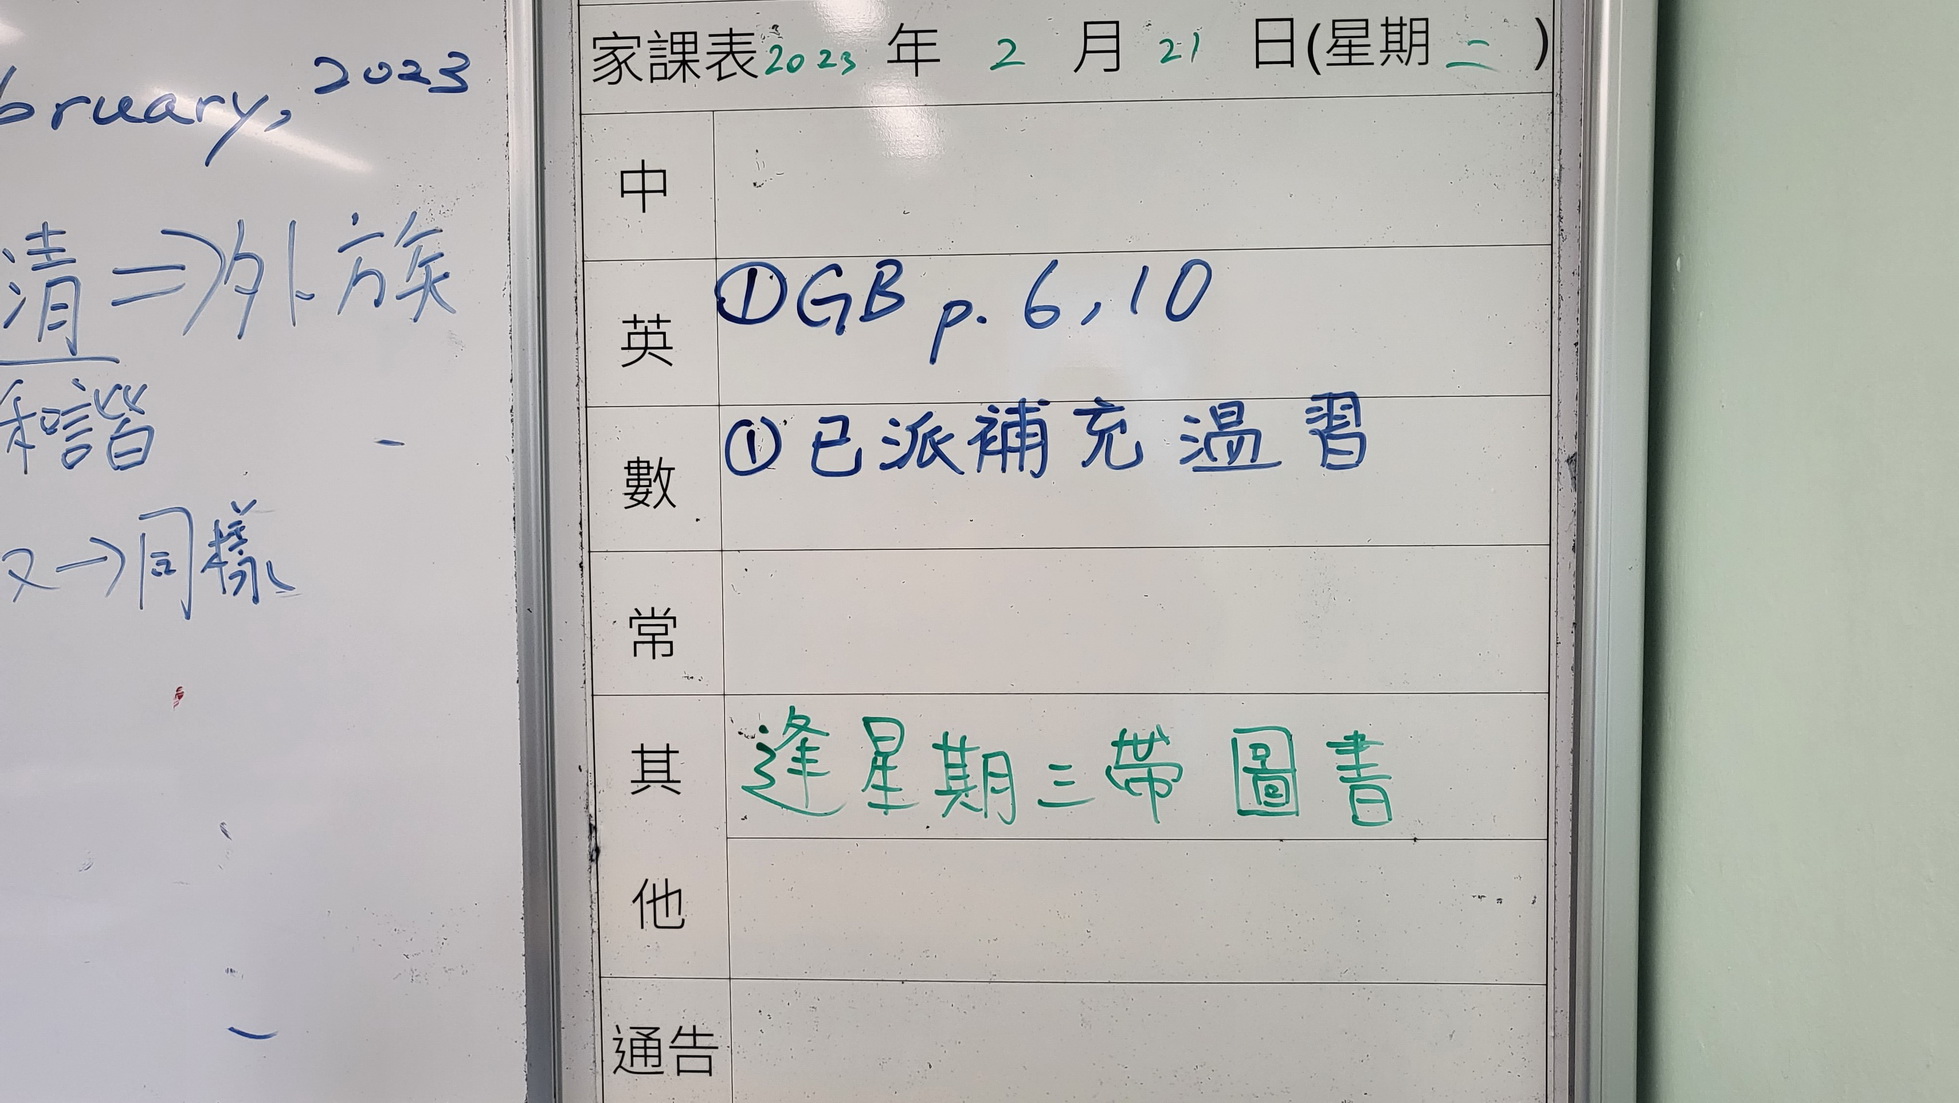 bruary, 2023
清⇒外族
和諧
又→同樣
家課表2023年2月21日(星期二)
中
英 ①GB p. 6,10
數 ①已派補充溫習
常
其他 逢星期三帶圖書
通告